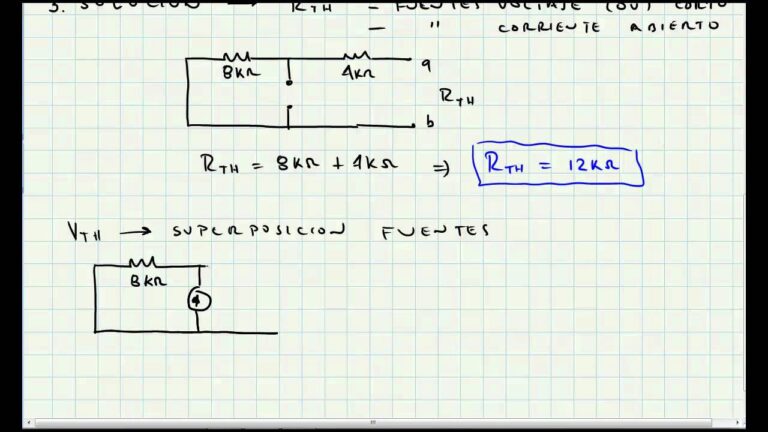 3. SOLUCION → RTH - FUENTES VOLTAJE (0V) CORTO
- " CORRIENTE ABIERTO
8KΩ 4KΩ a
RTH
b
RTH = 8KΩ + 4KΩ ⇒ RTH = 12KΩ
VTH → SUPERPOSICION FUENTES
8KΩ